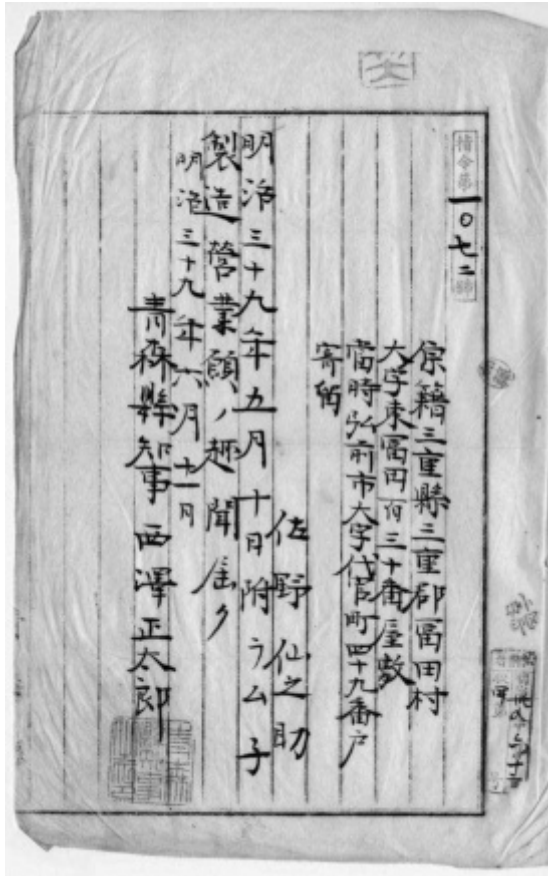 指令第一〇七二號
原籍三重縣三重郡冨田村
大字東冨田百三十番屋敷
當時弘前市大字代官町四十九番戸
寄留
佐野仙之助
明治三十九年五月十日附ラムネ
製造營業願ノ趣聞届ク
明治三十九年六月十一日
青森縣知事西澤正太郎